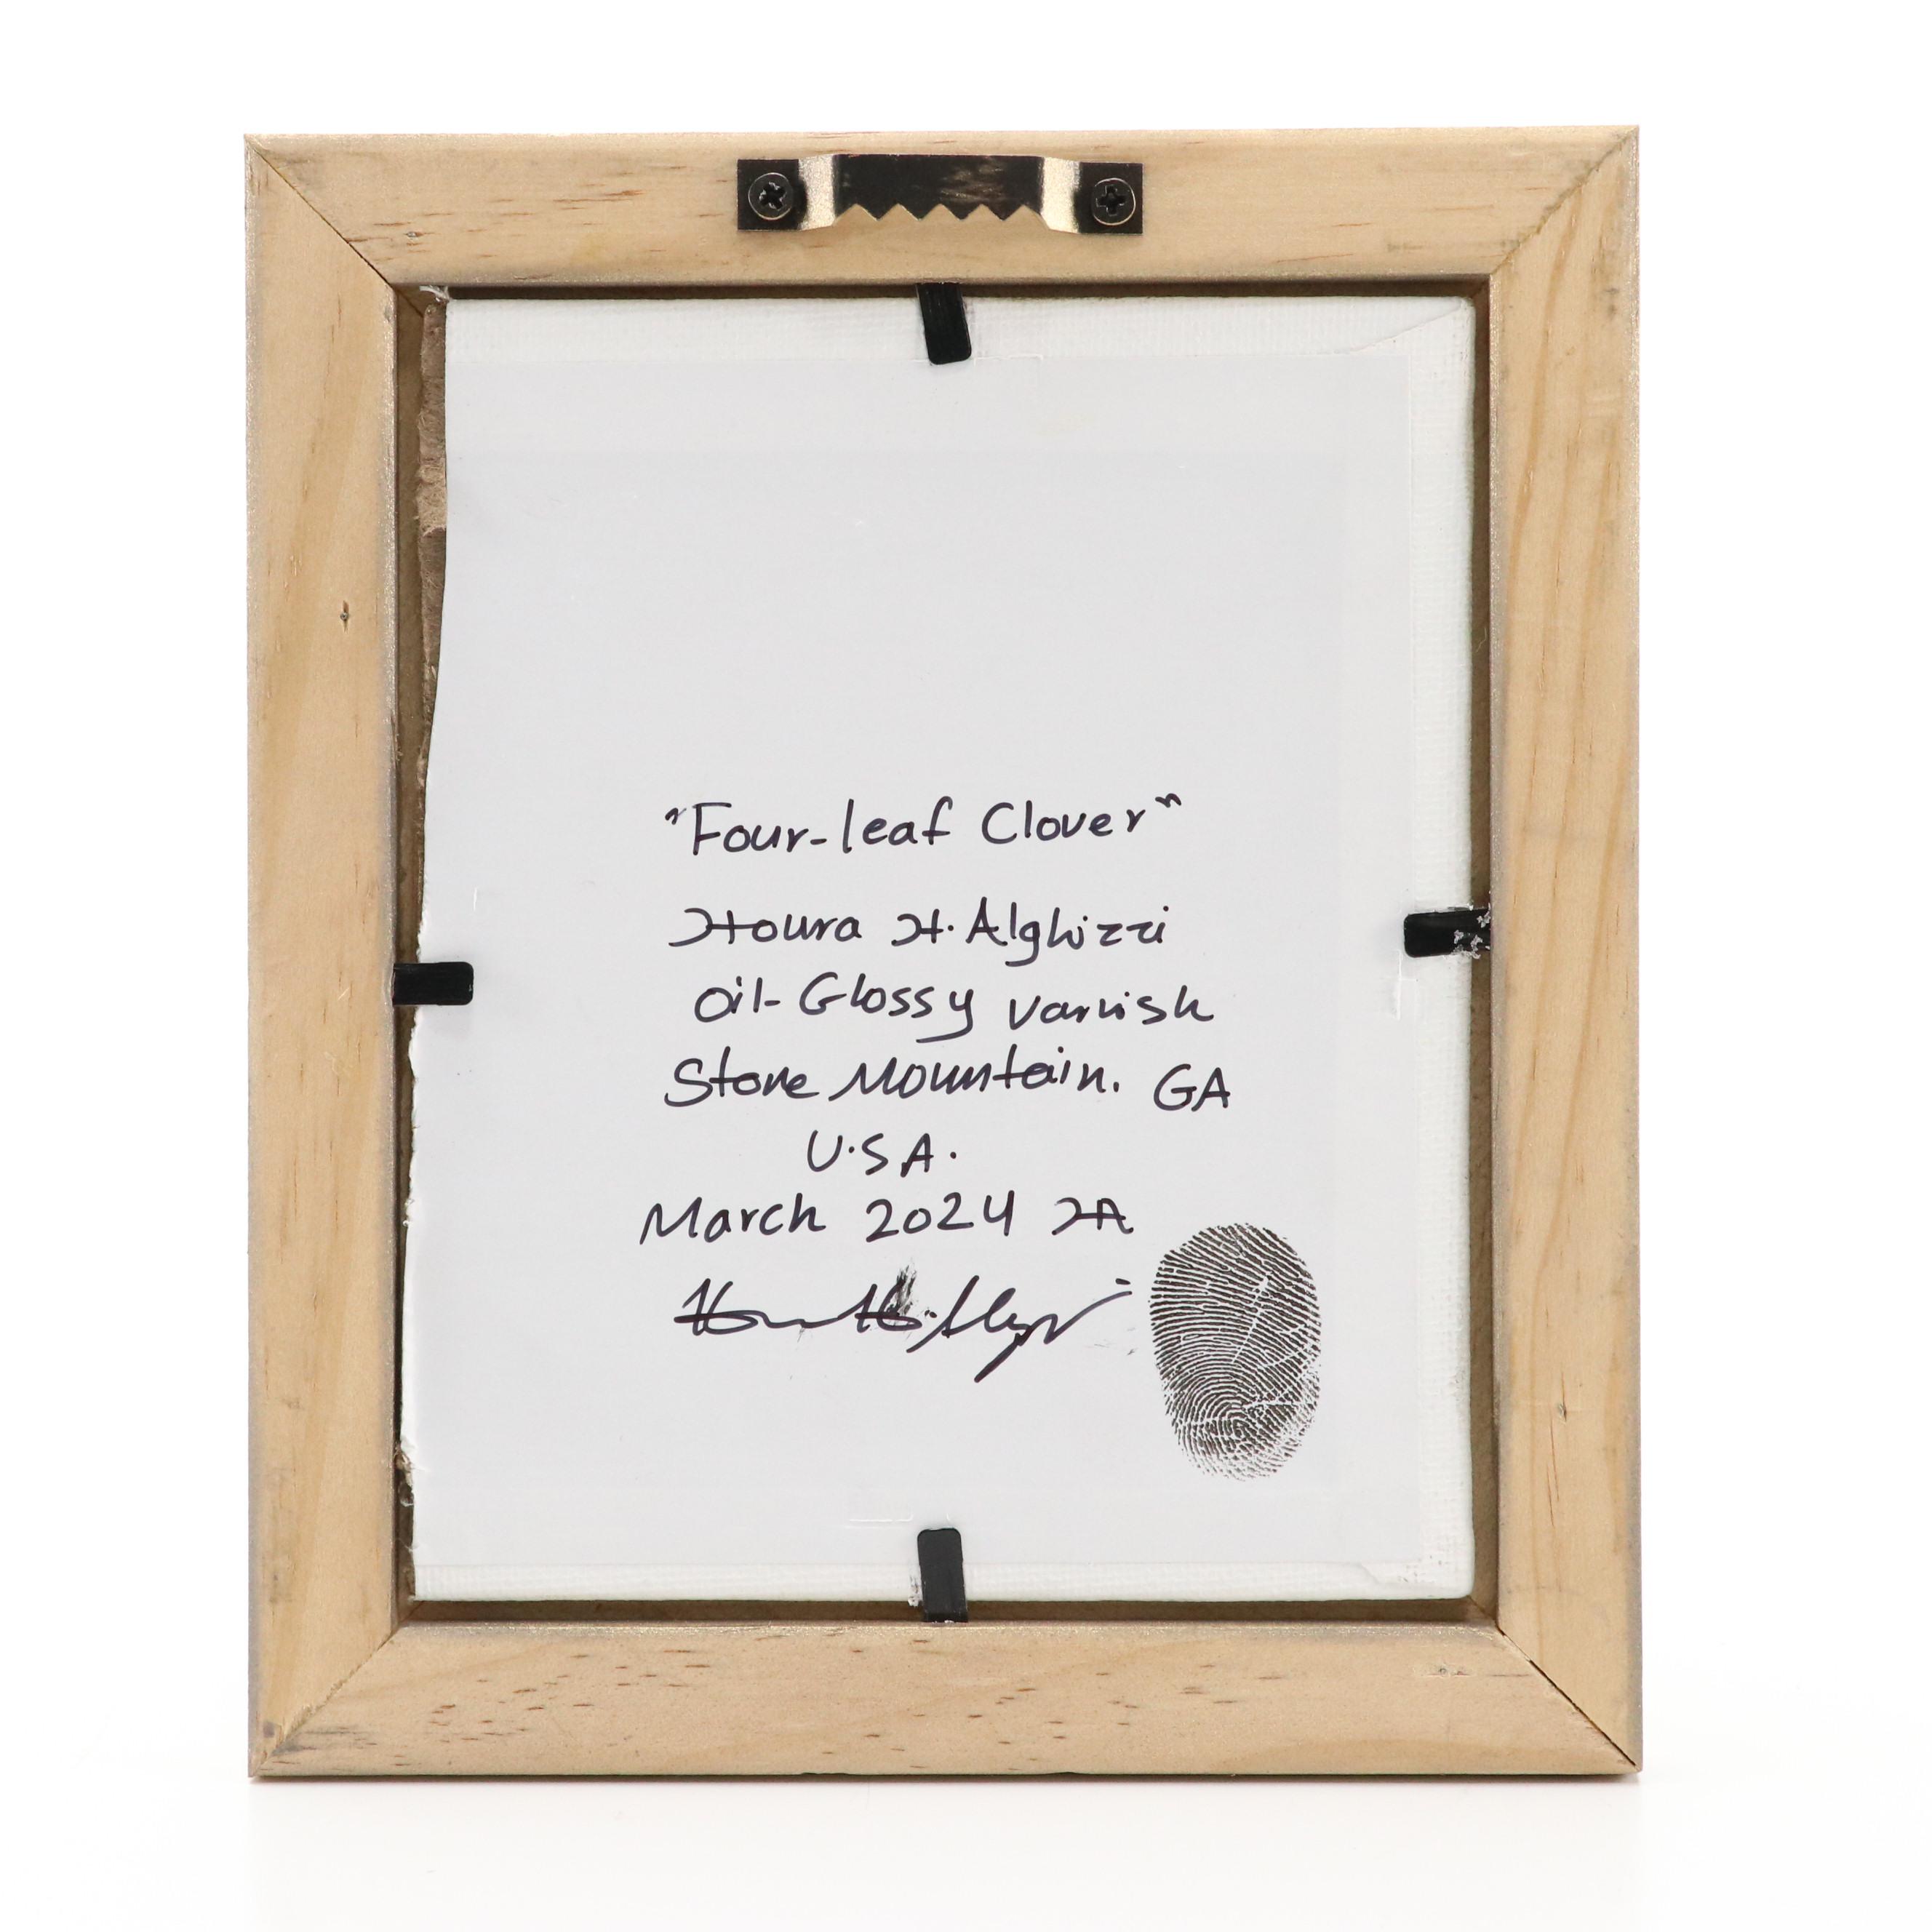 "Four-leaf Clover"
Houra H. Alghizzi
Oil-Glossy varnish
Stone Mountain. GA
U.S.A.
March 2024 HA